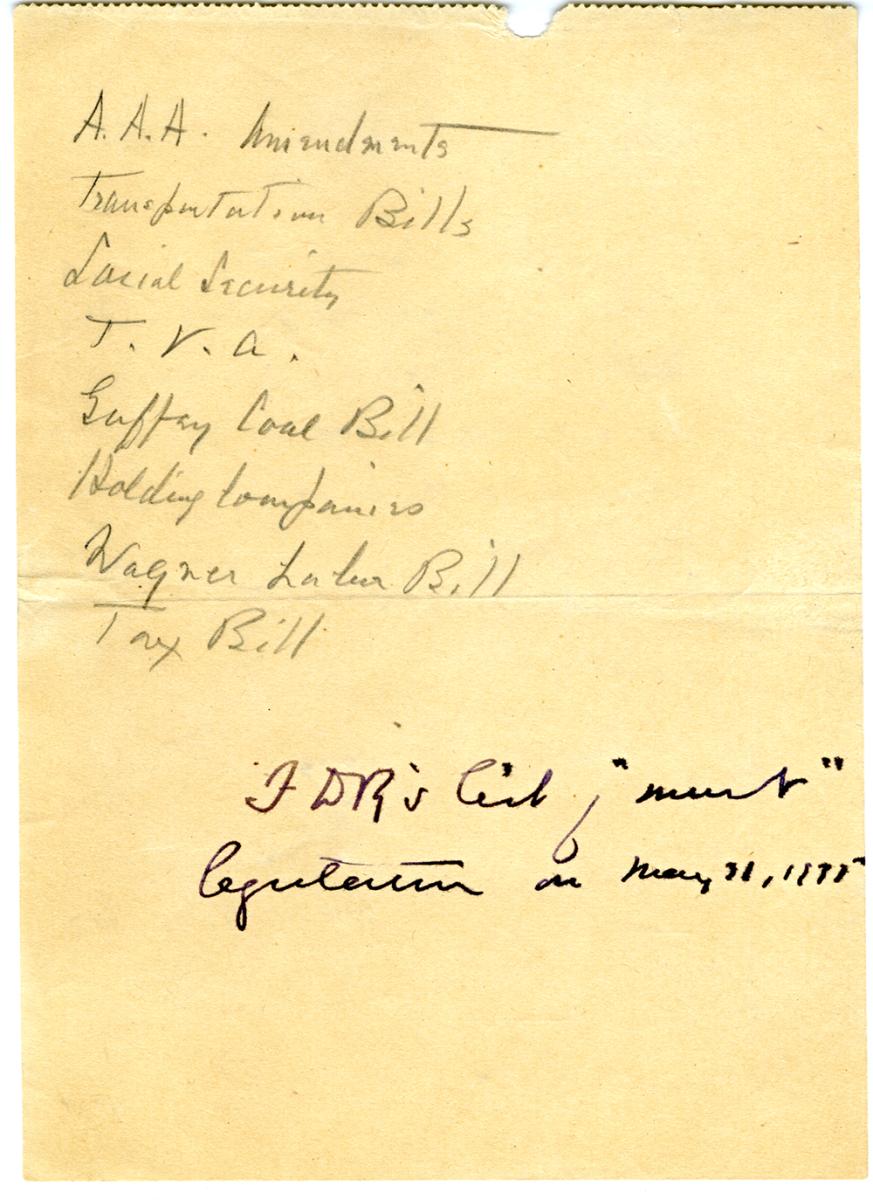 A.A.A. Amendments
Transportation Bills
Social Security
T.V.A.
Guffey Coal Bill
Holding Companies
Wagner Labor Bill
Tax Bill
FDR's list of "must"
legislation on May 31, 1935